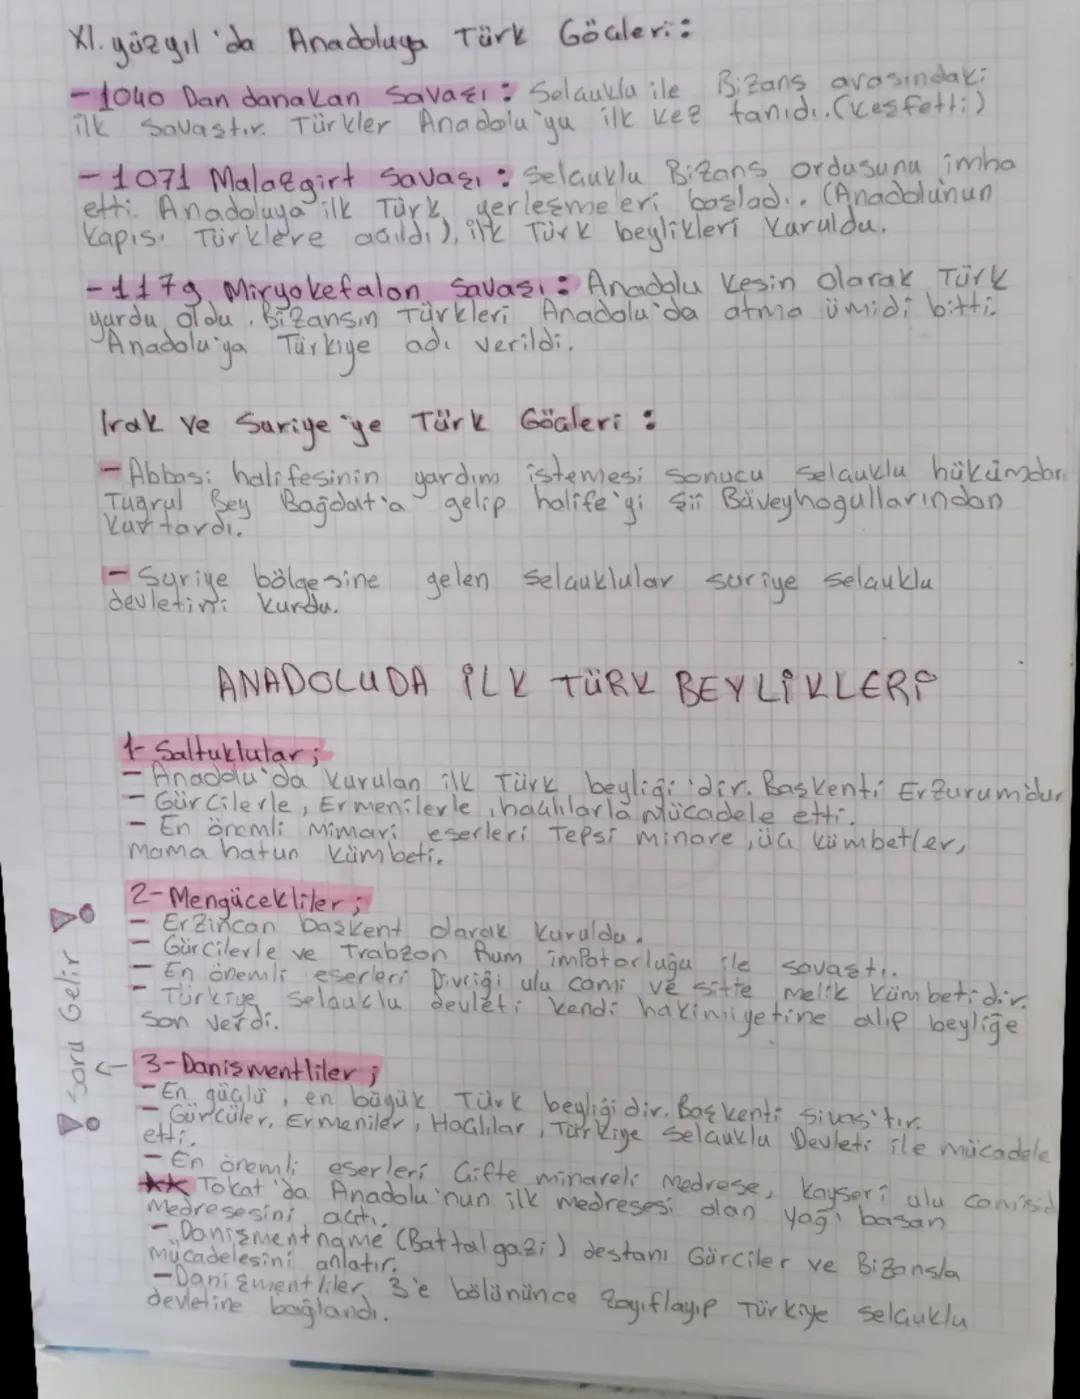 XI. yüzyıl'da Anadoluya Türk Göçleri:
- 1040 Dandanakan Savaşı: Selçuklu ile Bizans arasındaki
ilk savaştır. Türkler Anadolu'yu ilk kez tanıdı. (keşfetti)
- 1071 Malazgirt Savaşı: Selçuklu Bizans ordusunu imha
etti. Anadoluya ilk Türk yerleşmeleri başladı. (Anadolunun
kapısı Türklere açıldı), ilk Türk beylikleri kuruldu.
- 1179 Miryokefalon Savaşı: Anadolu kesin olarak Türk
yurdu oldu. Bizansın Türkleri Anadolu'da atma ümidi bitti.
Anadolu'ya Türkiye adı verildi.
Irak ve Suriye'ye Türk Göçleri:
- Abbasi halifesinin yardım istemesi sonucu Selçuklu hükümdarı
Tuğrul Bey Bağdat'a gelip halife'yi şii Büveyhoğullarından
kurtardı.
- Suriye bölgesine gelen Selçuklular suriye selçuklu
devletini kurdu.
ANADOLUDA İLK TÜRK BEYLİKLERİ
1- Saltuklular;
- Anadolu'da kurulan ilk Türk beyliği'dir. Başkenti Erzurumdur
- Gürcilerle, Ermenilerle, haçlılarla mücadele etti.
- En önemli mimari eserleri Tepsi minare, üç kümbetler,
Mama hatun kümbeti.
2- Mengücekliler;
- Erzincan başkent olarak kuruldu.
- Gürcilerle ve Trabzon Rum impatorluğu ile savaştı.
- En önemli eserleri Divriği ulu cami ve sitte melik kümbetidir.
- Türkiye Selçuklu devleti kendi hakimiyetine alıp beyliğe
son verdi.
Soru Gelir
3- Danişmentliler;
- En güçlü, en büyük Türk beyliğidir. Başkenti sivas'tır.
- Gürcüler, Ermeniler, Haçlılar, Türkiye Selçuklu Devleti ile mücadele
etti.
- En önemli eserleri Çifte minareli medrese, Kayseri ulu camisid
** Tokat'da Anadolu'nun ilk medresesi olan yağı basan
Medresesini açtı.
- Danişmentname (Battalgazi) destanı Gürciler ve Bizansla
mücadelesini anlatır.
- Danişmentliler 3'e bölününce zayıflayıp Türkiye selçuklu
devletine bağlandı.